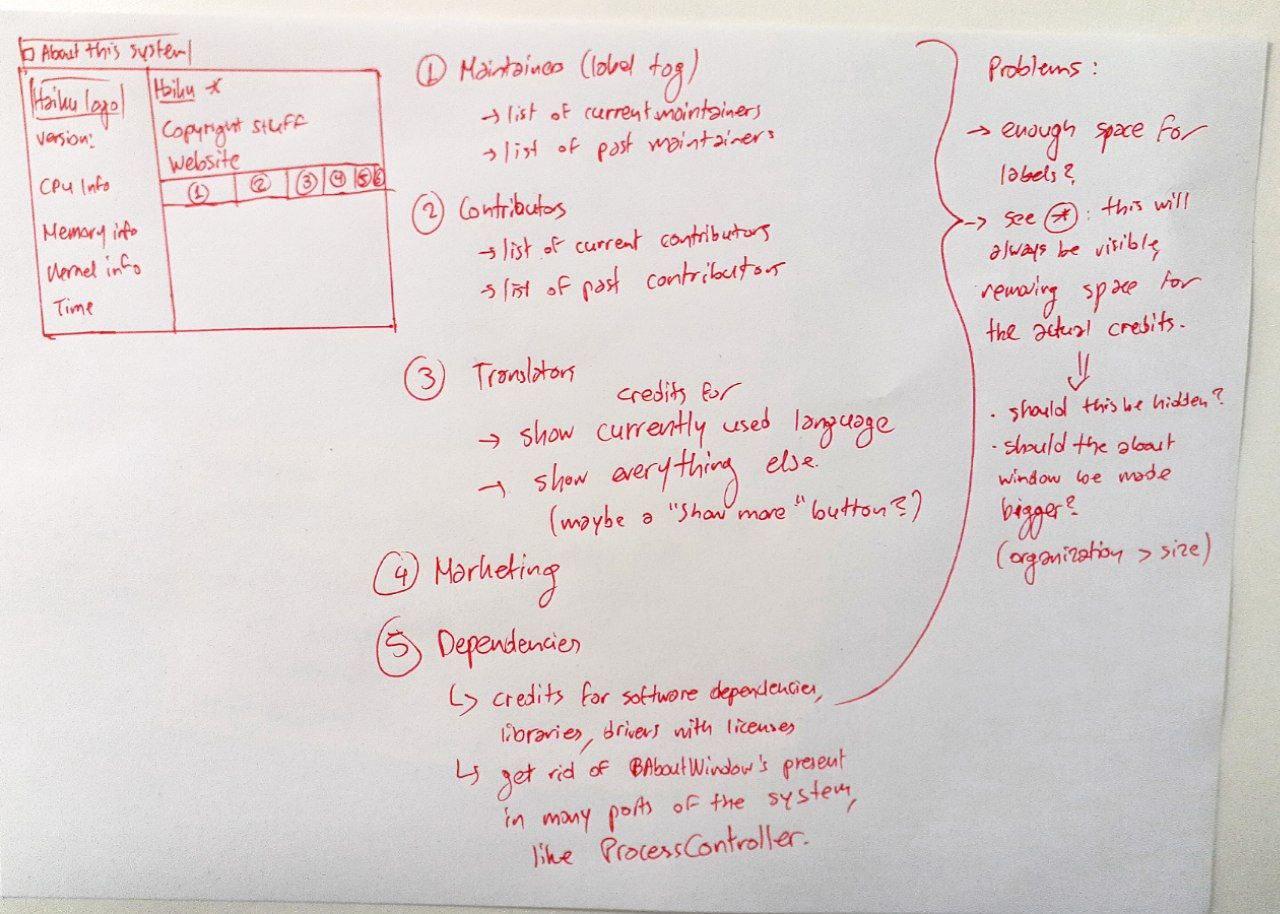 About this system
Haiku logo
Version:
CPU Info
Memory info
Kernel info
Time
Haiku *
Copyright stuff
Website
1 2 3 4 5 6
1 Maintainers (label tag)
→ list of current maintainers
→ list of past maintainers
2 Contributors
→ list of current contributors
→ list of past contributors
3 Translators
credits for
→ show currently used language
→ show everything else.
(maybe a "Show more" button?)
4 Marketing
5 Dependencies
↳ credits for software dependencies,
libraries, drivers with licenses
↳ get rid of BAboutWindow's present
in many parts of the system,
like ProcessController.
Problems:
→ enough space for
labels?
→ see *: this will
always be visible,
removing space for
the actual credits.
⇓
· should this be hidden?
· should the about
window be made
bigger?
(organization > size)